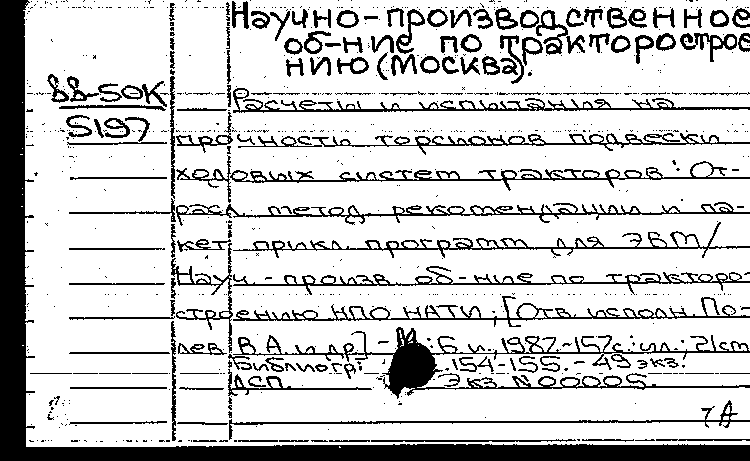 Научно-производственное
об-ние по тракторострое
нию (Москва).
88-50К
5197
Расчеты и испытания на
прочности торсионов подвески
ходовых систем тракторов: От-
расл. метод. рекомендации и па-
кет прикл. программ для ЭВМ/
Науч.-произв. об-ние по тракторо-
строению НПО НАТИ; [Отв. исполн. По-
лев В.А. и др] - М.: Б.и., 1987.-157с.: ил.; 21см
Библиогр: 154-155. - 49 экз.
ДСП. Экз. N 00005.